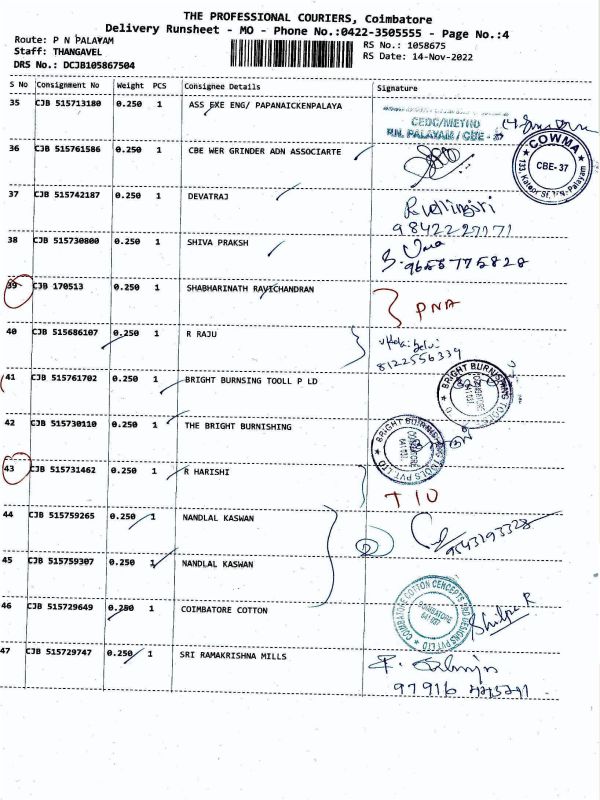 THE PROFESSIONAL COURIERS, Coimbatore
Delivery Runsheet - MO - Phone No.:0422-3505555 - Page No.:4
Route: P N PALAYAM
Staff: THANGAVEL
DRS No.: DCJB105867504
RS No.: 1058675
RS Date: 14-Nov-2022
S No Consignment No Weight PCS Consignee Details Signature
35 CJB 515713180 0.250 1 ASS EXE ENG/ PAPANAICKENPALAYA
CEDC/METRO
P.N. PALAYAM / CBE - 37
36 CJB 515761586 0.250 1 CBE WER GRINDER ADN ASSOCIARTE
COWMA
CBE-37
37 CJB 515742187 0.250 1 DEVATRAJ
R vellingiri
9842227171
38 CJB 515730800 0.250 1 SHIVA PRAKSH
S. Uma
9688775828
39 CJB 170513 0.250 1 SHABHARINATH RAVICHANDRAN
PNA
40 CJB 515686107 0.250 1 R RAJU
8122556339
41 CJB 515761702 0.250 1 BRIGHT BURNSING TOOLL P LD
BRIGHT BURNISHING TOOLS
COIMBATORE
641 037
42 CJB 515730110 0.250 1 THE BRIGHT BURNISHING
BRIGHT BURNISHING TOOLS PVT. LTD
COIMBATORE
641 037
43 CJB 515731462 0.250 1 R HARISHI
T I U
44 CJB 515759265 0.250 1 NANDLAL KASWAN
2
9543193328
45 CJB 515759307 0.250 1 NANDLAL KASWAN
46 CJB 515729649 0.250 1 COIMBATORE COTTON
COIMBATORE COTTON CENCEPTS AND DESIGNS PVT LTD
COIMBATORE
641 037
Shilpa R
47 CJB 515729747 0.250 1 SRI RAMAKRISHNA MILLS